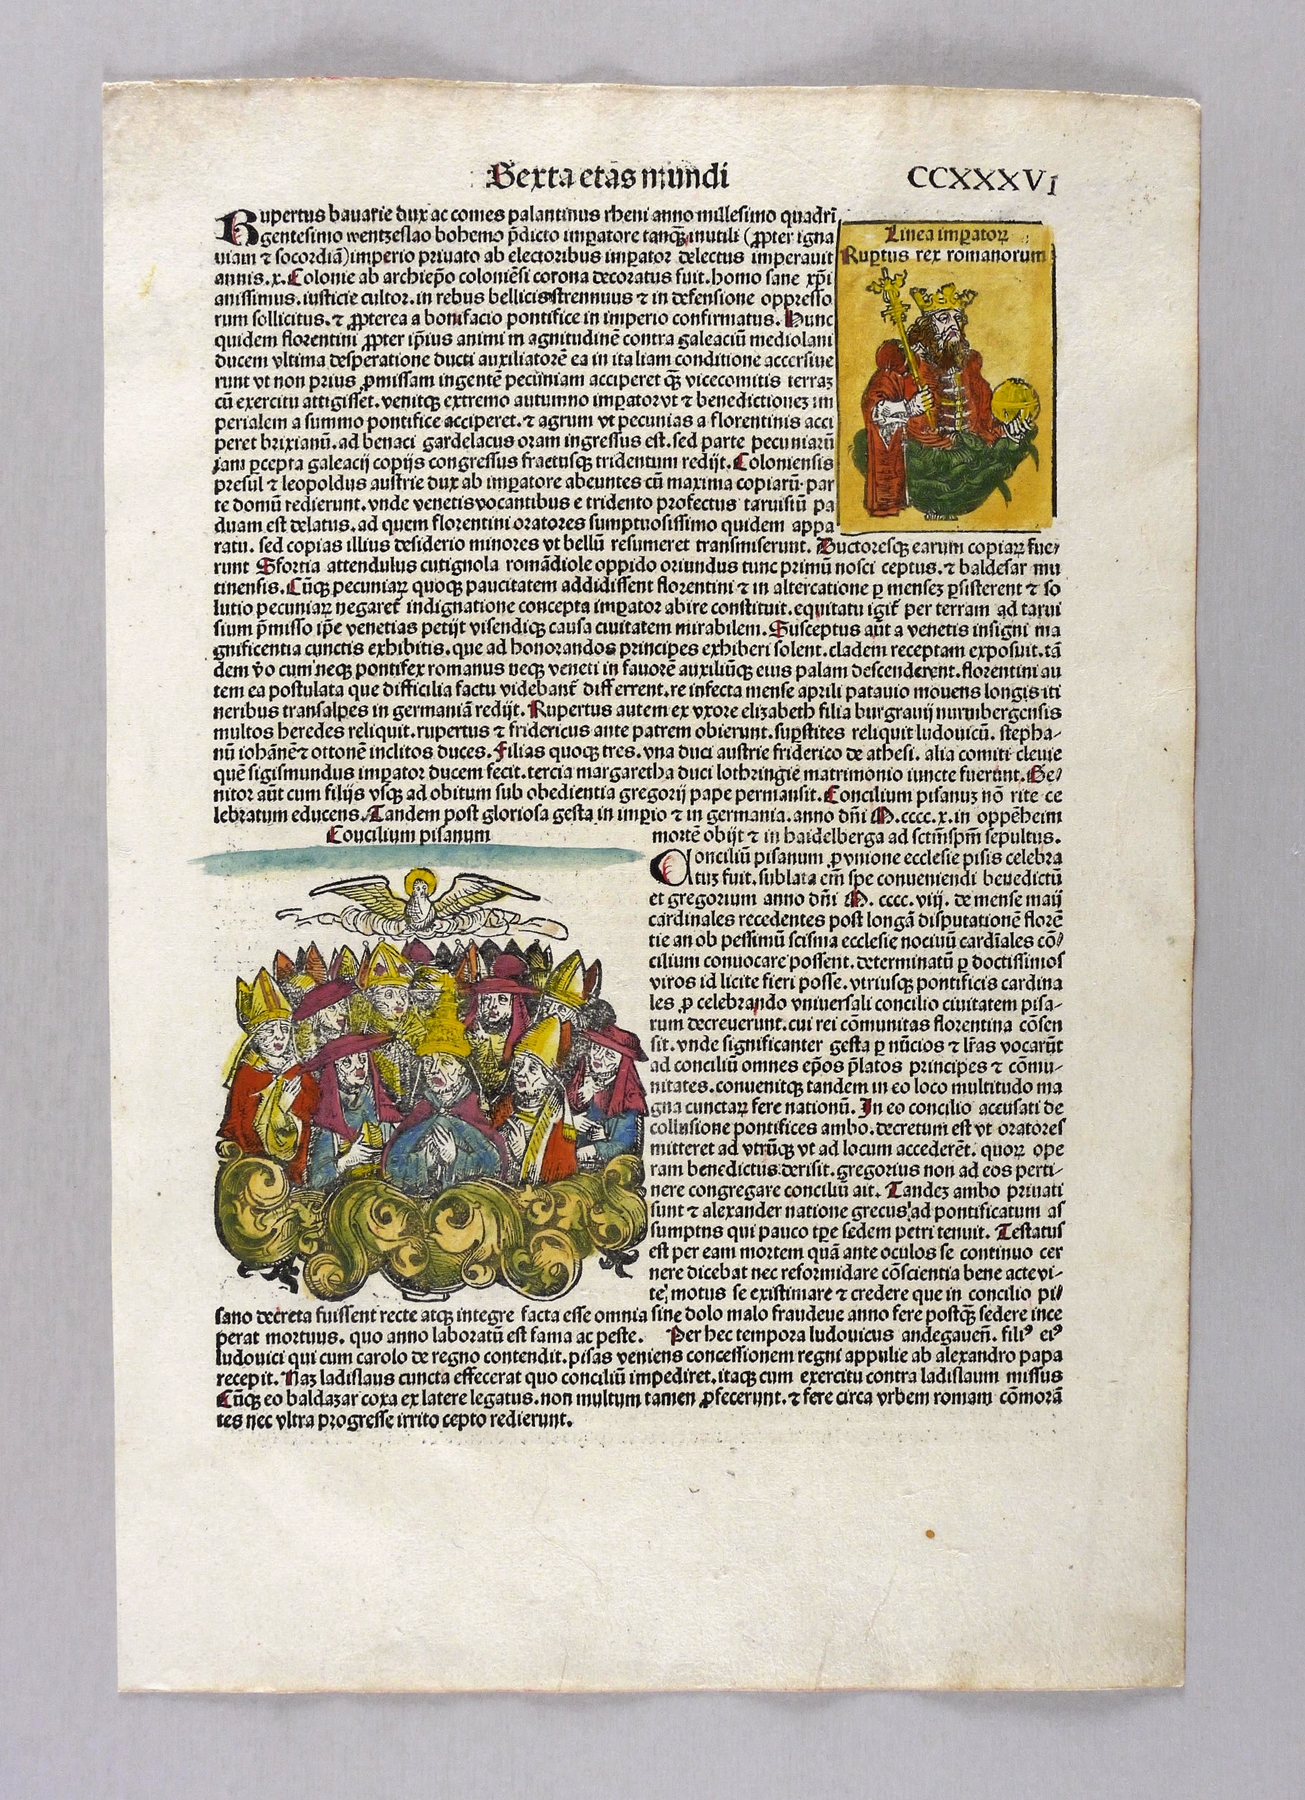 Sexta etas mundi
CCXXXVI
Rupertus bauarie dux ac comes palantinus rheni anno millesimo quadri
gentesimo wentzeslao bohemo p̄dicto imꝑatore tanq̃ inutili (ꝓpter igna
uiam ⁊ socordiā) imperio priuato ab electoribus imꝑator delectus imperauit
annis.x. Colonie ab archiep̄o coloniēsi corona decoratus fuit. homo sane xp̄i
anissimus. iusticie cultor. in rebus bellicis strennuus ⁊ in defensione oppresso
rum sollicitus. ⁊ ꝓpterea a bonifacio pontifice in imperio confirmatus. Hunc
quidem florentini ꝓpter ip̄ius animi magnitudinē contra galeaciū mediolani
ducem vltima desperatione ducti auxiliatorē ea in italiam conditione accersiue
runt vt non prius ꝓmissam ingentē pecuniam acciperet q̃ vicecomitis terraꝫ
cū exercitu attigisset. venitqꝫ extremo autumno imꝑator vt ⁊ benedictioneꝫ im
perialem a summo pontifice acciperet. ⁊ agrum vt pecunias a florentinis acci
peret brixianū. ad benaci gardelacus oram ingressus est. sed parte pecuniarū
iam ꝑcepta galeacij copijs congressus fractusqꝫ tridentum redijt. Coloniensis
presul ⁊ leopoldus austrie dux ab imꝑatore abeuntes cū maxima copiarū par
te domū redierunt. vnde venetis vocantibus e tridento profectus taruisiū pa
duam est delatus. ad quem florentini oratores sumptuosissimo quidem appa
ratu. sed copias illius desiderio minores vt bellū resumeret transmiserunt. Ductoresqꝫ earum copiaꝝ fue-
runt Sfortia attendulus cutignola romādiole oppido oriundus tunc primū nosci ceptus. ⁊ baldesar mu
tinensis. Cūqꝫ pecuniaꝝ quoqꝫ paucitatem addidissent florentini ⁊ in altercatione ꝑ menseꝫ ꝑsisterent ⁊ so
lutio pecuniaꝝ negaret̃ indignatione concepta imꝑator abire constituit. equitatu igit̃ per terram ad tarui
sium p̄misso ip̄e venetias petijt visendiqꝫ causa ciuitatem mirabilem. Susceptus aūt a venetis insigni ma
gnificentia cunctis exhibitis. que ad honorandos principes exhiberi solent. cladem receptam exposuit. tā
dem v̄o cum neqꝫ pontifex romanus neqꝫ veneti in fauorē auxiliūqꝫ eius palam descenderent. florentini au
tem ea postulata que difficilia factu videbant̃ differrent. re infecta mense aprili patauio mouens longis iti
neribus transalpes in germaniā redijt. Rupertus autem ex vxore elizabeth filia burgrauij nurmbergensis
multos heredes reliquit. rupertus ⁊ fridericus ante patrem obierunt. suꝑstites reliquit ludouicū. stepha-
nū iohānē ⁊ ottonē inclitos duces. Filias quoqꝫ tres. vna duci austrie friderico de athesi. alia comiti cleuie
quē sigismundus imꝑator ducem fecit. tercia margaretha duci lothringie matrimonio iuncte fuerunt. Ge-
nitor aūt cum filijs vsqꝫ ad obitum sub obedientia gregorij pape permansit. Concilium pisanuꝫ nō rite ce
lebratum educens. Tandem post gloriosa gesta in imꝑio ⁊ in germania. anno dn̄i M.cccc.x. in oppēheim
mortē obijt ⁊ in haidelberga ad sctm̄spm̄ sepultus.
Linea imꝑatoꝝ
Ruꝑtus rex romanorum
Coucilium pisanum
Conciliū pisanum ꝓ vnione ecclesie pisis celebra
tuꝫ fuit. sublata em̄ spe conueniendi benedictū
et gregorium anno dn̄i M. cccc. viij. de mense maij
cardinales recedentes post longā disputationē florē
tie an ob pessimū scisma ecclesie nociuū cardīales cō-
cilium conuocare possent. determinatū ꝑ doctissimos
viros id licite fieri posse. vtriusqꝫ pontificis cardina
les ꝓ celebrando vniuersali concilio ciuitatem pisa-
rum decreuerunt. cui rei cōmunitas florentina cōsen
sit. vnde significanter gesta ꝑ nūcios ⁊ lr̄as vocarūt
ad conciliū omnes ep̄os p̄latos principes ⁊ cōmu-
nitates. conuenitqꝫ tandem in eo loco multitudo ma
gna cunctaꝝ fere nationū. In eo concilio accusati de
collusione pontifices ambo. decretum est vt oratores
mitteret ad vtrūqꝫ vt ad locum accederēt. quoꝝ ope
ram benedictus derisit. gregorius non ad eos perti-
nere congregare conciliū ait. Tandeꝫ ambo priuati
sunt ⁊ alexander natione grecus ad pontificatum as
sumptus qui pauco tꝑe sedem petri tenuit. Testatus
est per eam mortem quā ante oculos se continuo cer
nere dicebat nec reformidare cōscientia bene acte vi-
te motus se existimare ⁊ credere que in concilio pi-
sano decreta fuissent recte atqꝫ integre facta esse omnia sine dolo malo fraudeue anno fere postq̃ sedere ince
perat mortuus. quo anno laboratū est fama ac peste. Per hec tempora ludouicus andegauen̄. filiꝰ eiꝰ
ludouici qui cum carolo de regno contendit. pisas veniens concessionem regni appulie ab alexandro papa
recepit. Naꝫ ladislaus cuncta effecerat quo conciliū impediret. itaqꝫ cum exercitu contra ladislaum missus
Cūqꝫ eo baldazar coxa ex latere legatus. non multum tamen ꝓfecerunt. ⁊ fere circa vrbem romam cōmorā
tes nec vltra progresse irrito cepto redierunt.